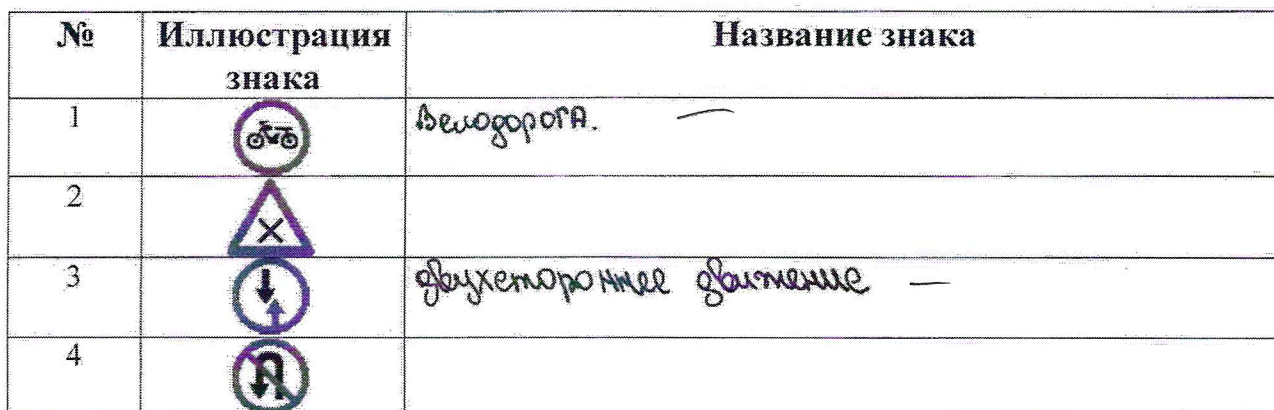 № Иллюстрация знака Название знака
1 Велодорога. —
2
3 двухстороннее движение —
4